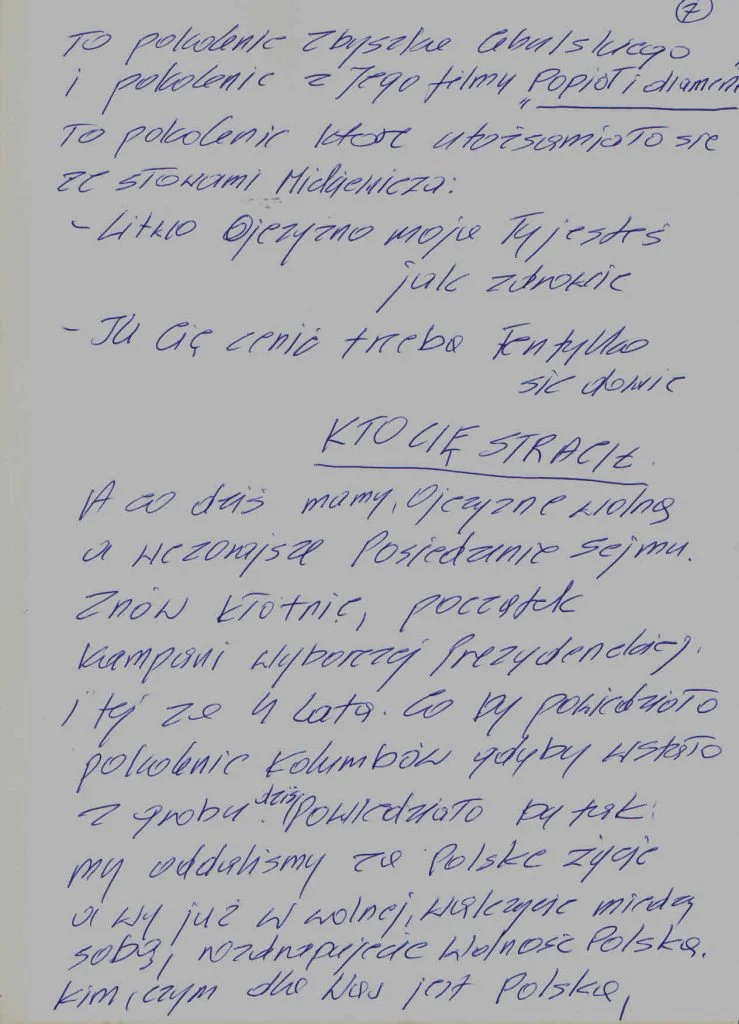 7
To pokolenie Zbyszka Cybulskiego
i pokolenie z Jego filmu „Popiół i diament
To pokolenie które utożsamiało się
ze słowami Mickiewicza:
- Litwo Ojczyzno moja Ty jesteś
jak zdrowie
- Ile Cię cenić trzeba Ten tylko
się dowie
KTO CIĘ STRACIŁ.
A co dziś mamy, Ojczyznę wolną
a wczorajsze Posiedzenie Sejmu.
Znów kłótnie, początek
kampani wyborczej Prezydenckiej.
i tej za 4 lata. Co by powiedziało
pokolenie Kolumbów gdyby wstało
z grobu dziś. Powiedziało by tak:
my oddaliśmy za Polskę życie
a wy już w wolnej, walczycie między
sobą, rozdrapujecie wolność Polską.
Kim, czym dla Was jest Polska,